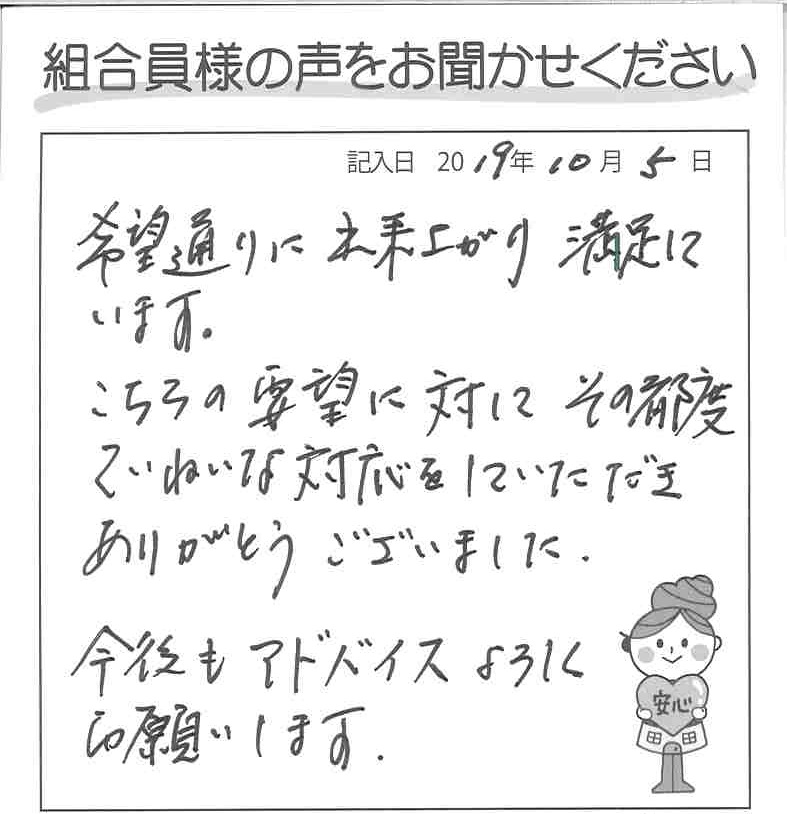 組合員様の声をお聞かせください
記入日 2019年 10月 5日
希望通りに出来上がり 満足して
います。
こちらの要望に対して その都度
ていねいな対応をしていただき
ありがとうございました.
今後もアドバイスよろしく
お願いします.
安心